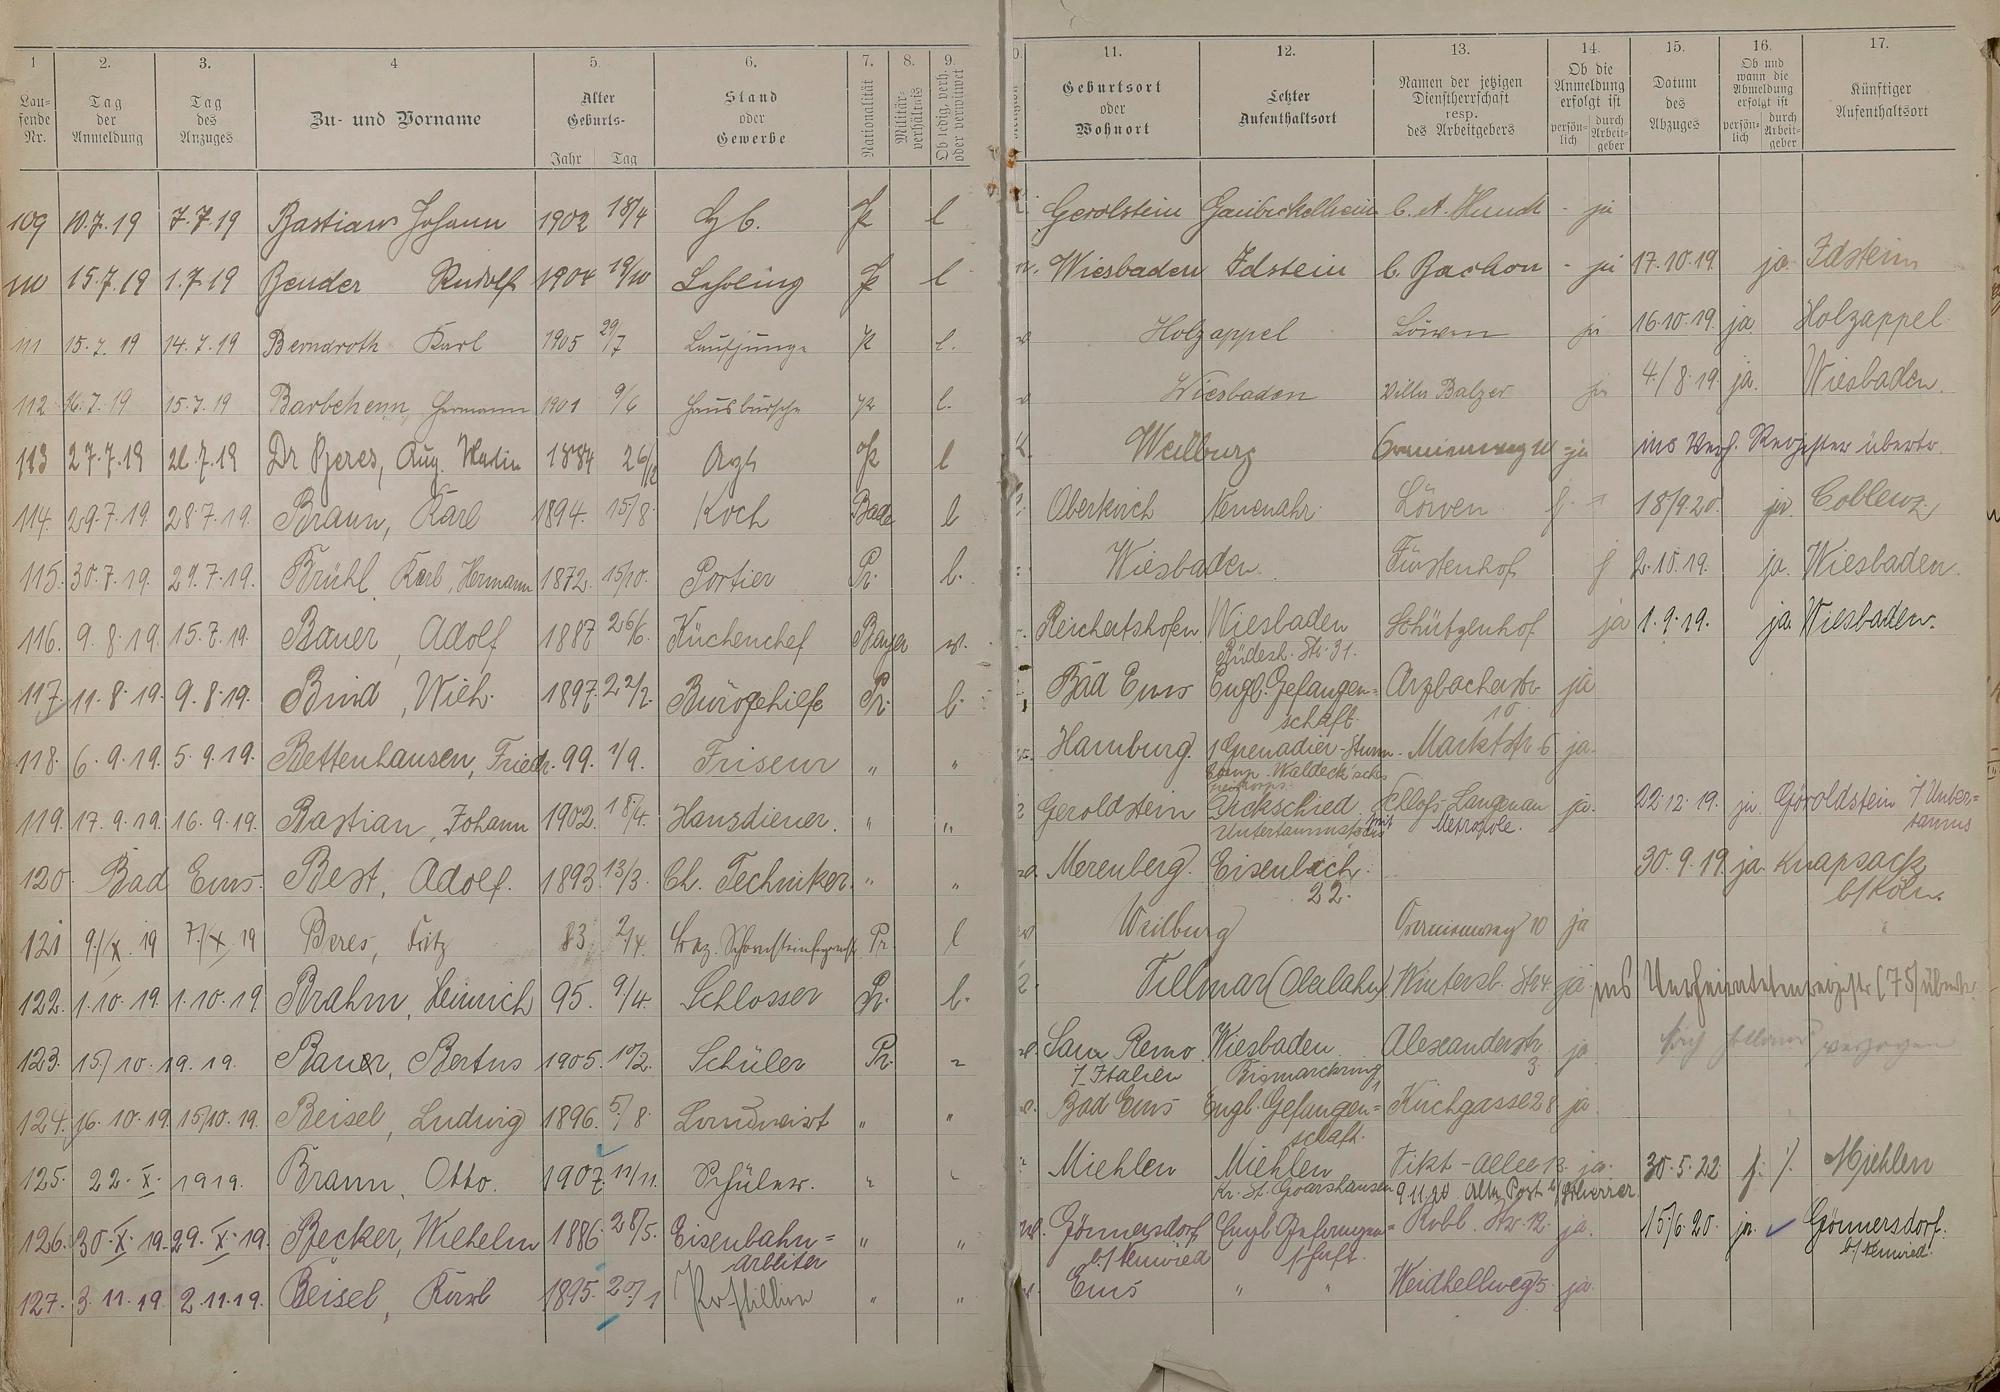 1 2. 3. 4 5. 6. 7. 8. 9. 11. 12. 13. 14. 15. 16. 17.
Laufende Nr. Tag der Anmeldung Tag des Anzuges Zu- und Vorname Alter Geburts- Jahr Tag Stand oder Gewerbe Nationalität Militärverhältnis Ob ledig, verh. oder verwitwet Geburtsort oder Wohnort Letzter Aufenthaltsort Namen der jetzigen Dienstherrschaft resp. des Arbeitgebers Ob die Anmeldung erfolgt ist persönlich durch Arbeitgeber Datum des Abzuges Ob und wann die Abmeldung erfolgt ist persönlich durch Arbeitgeber Künftiger Aufenthaltsort
109 10.7.19 7.7.19 Bastian Johann 1902 18/4 l Gerolstein - ja
110 15.7.19 1.7.19 Bender Rudolf 1904 19/10 Lehrling l Wiesbaden Idstein - ja 17.10.19. ja Idstein
111 15.7.19 14.7.19 Berndroth Karl 1905 29/7 Laufjunge l. Holzappel Löwen ja 16.10.19. ja Holzappel
112 16.7.19 15.7.19 Barbehenn, Hermann 1901 9/6 Hausbursche l. Wiesbaden Villa Balzer ja 4/8.19. ja. Wiesbaden.
113 27.7.19 21.7.19 Dr Beres, Aug. 1884 26/12 Arzt l Weilburg Oranienweg 10 - ja ins Verh. Register übertr.
114. 29.7.19. 28.7.19. Braun, Karl 1894. 15/8. Koch Bade l Oberkirch Neuenahr. Löwen 18/9.20. ja. Coblenz
115. 30.7.19. 29.7.19. Brühl, Karl, Hermann 1872. 15/10. Portier Pr. l. Wiesbaden. Fürstenhof 2.10.19. ja. Wiesbaden.
116. 9.8.19. 15.7.19. Bauer, Adolf 1887 26/6. Küchenchef Bayer w. Reichertshofen Wiesbaden Rüdesh. Str. 31. Schützenhof ja 1.9.19. ja. Wiesbaden.
117. 11.8.19. 9.8.19. Bind, Wilh. 1897. 22/2. Bürogehilfe Pr. l. Bad Ems Engl. Gefangenschaft. Arzbacherstr. 10 ja
118. 6.9.19. 5.9.19. Bettenhausen, Friedr. 99. 1/9. Friseur " " Hamburg. Grenadier-Sturm-Comp. Waldeck'sches Marktstr 6 ja.
119. 17.9.19. 16.9.19. Bastian, Johann 1902. 18/4. Hausdiener. " " Geroldstein Dickschied Untertaunuskreis Schloß Langenau mit Metropole. ja. 22.12.19. ja Göroldstein i/Untertaunus
120. Bad Ems. Best, Adolf. 1893. 13/3. Ch. Techniker. " " Merenberg. Eisenbach. 22. 30.9.19. ja. Knapsack b/Köln.
121 9./X. 19 7./X. 19 Beres, Fritz 83 2/4. Pr. l Weilburg Oranienweg 10 ja
122. 1.10.19. 1.10.19. Brahm, Heinrich 95. 9/4. Schlosser Pr. l. Villmar (Oberlahn) Wintersb. Str 4. ja ins Verheiratetenregister (75) übertr.
123. 15/10.19.19. Bauer, Bertus 1905. 10/2. Schüler Pr. " San Remo i/Italien Wiesbaden Bismarckring 1 Alexanderstr. 3 ja nach Holland verzogen
124. 16.10.19. 15/10.19. Beisel, Ludwig 1896. 5/8. Landwirt " " Bad Ems Engl. Gefangenschaft. Kirchgasse 28 ja
125. 22.X. 1919. Braun, Otto. 1907. 11/11. Schüler. " " Miehlen Miehlen Kr. St. Goarshausen Vikt-Allee 13. ja. 9.11.20 Alte Post 30.5.22 Miehlen
126. 30.X.19. 29.X.19. Becker, Wilhelm 1886. 28/5. Eisenbahnarbeiter " " Gönnersdorf b/Neuwied Engl. Gefangenschaft. Kobl. Str. 12. ja. 15/6.20. ja. Gönnersdorf. b/Neuwied.
127. 3.11.19. 2.11.19. Beisel, Karl 1895. 20/1 Postillion " " Ems " " Weidhellweg 5. ja.